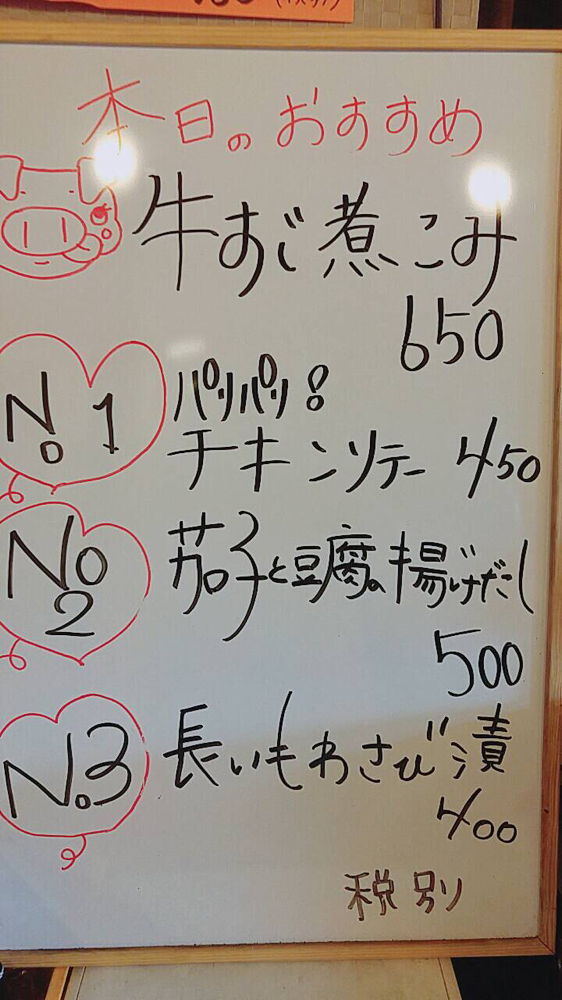 本日のおすすめ
牛すじ煮こみ
650
No1
パリパリ!
チキンソテー 450
No2
茄子と豆腐の揚げだし
500
No.3
長いもわさび漬
400
税別